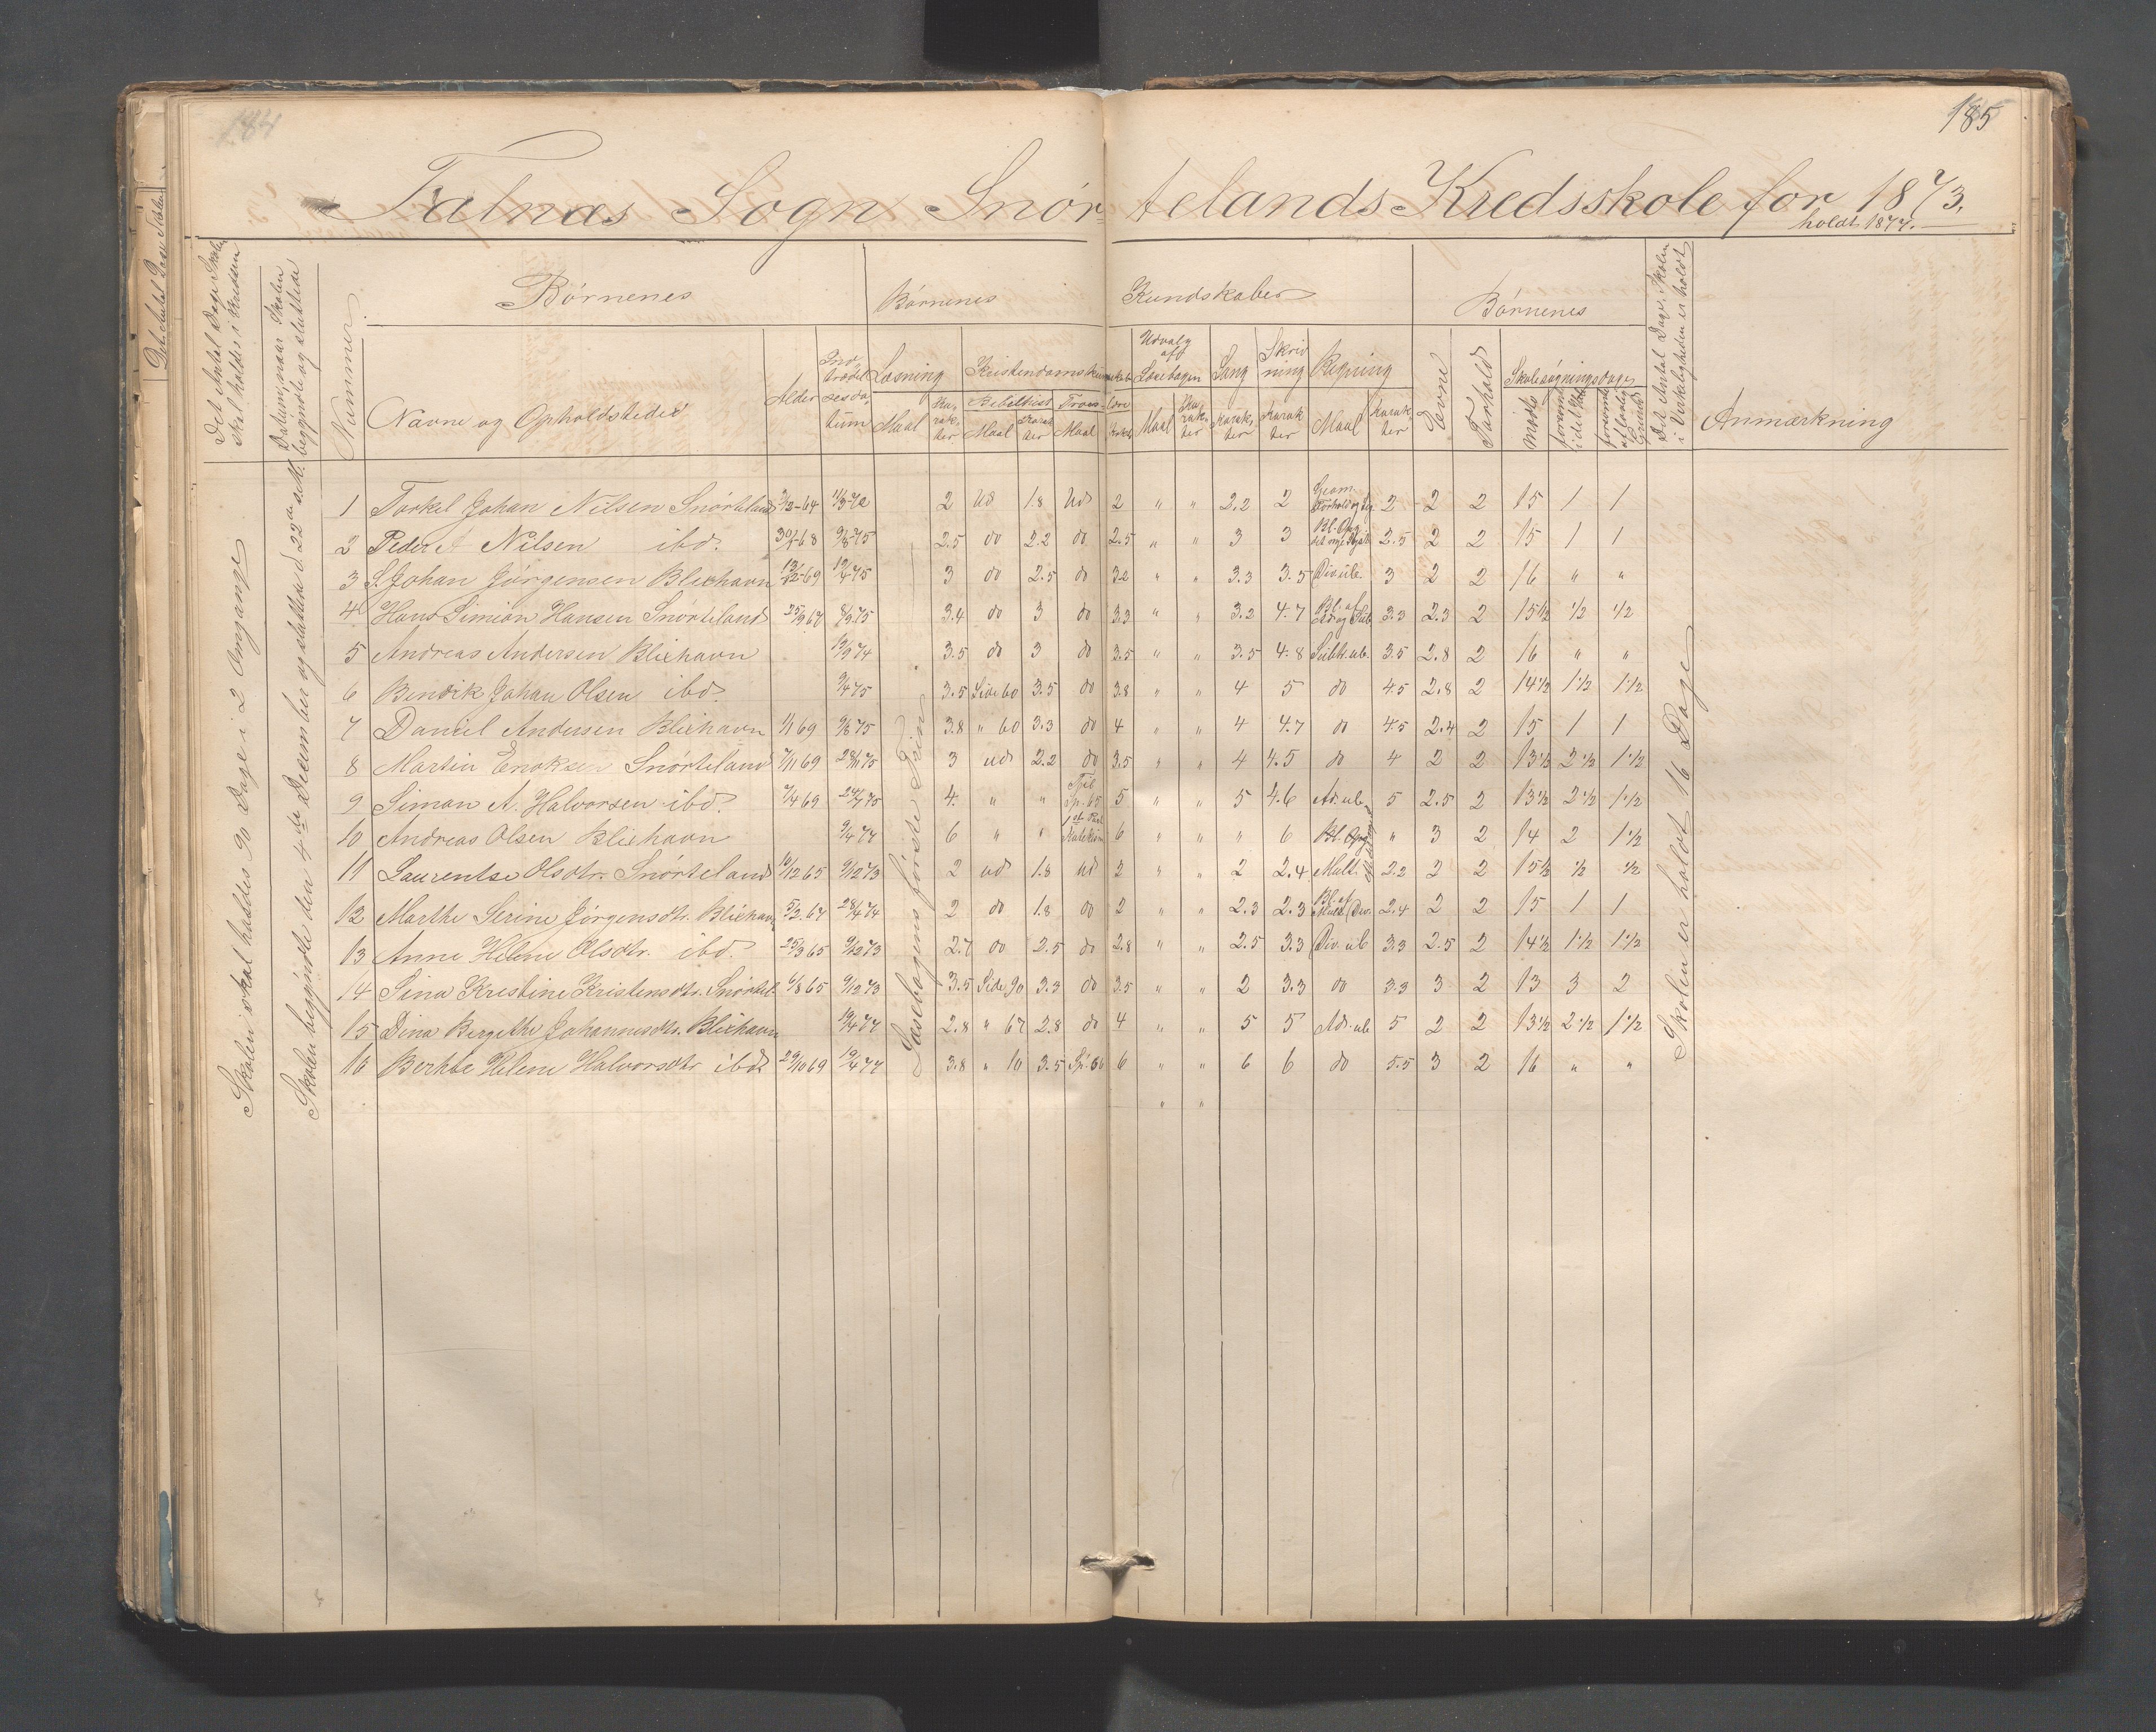 184
185
Falnæs Sogn Snørtelands Kredsskole for 1873.
holdt 1877.
Det Antal Dage Skolen skal holdes i Kredsen
Datum, naar Skolen begyndte og sluttede
Nummer
Børnenes
Børnenes
Kundskaber
Børnenes
Det Antal Dage, Skolen i Virkeligheden er holdt
Navne og Opholdsteder
Alder
Indtrædelsesdatum
Læsning
Kristendomskundskab
Udvalg af Læsebogen
Sang
Skrivning
Regning
Evne
Forhold
Skolesøgningsdage
Anmærkning
Maal
Karakter
Bibelhist.
Troeslære
Maal
Karakter
Maal
Karakt.
Maal
Karakter
Karakter
Karakter
Maal
Karakter
mødt
forsømt i det Hele
forsømt af lovlig Grund
Skolen skal holdes 90 Dage i 2 Omgange
Skolen begyndte den 4de Decemb​er og sluttede d. 22de
Læsebogens første Trin
Skolen er holdt 16 Dage
1 Torkel Johan Nilsen Snørteland 2 Ud 1.8 Ud 2 " " 2.2 2 2 2 2 15 1 1
2 Peder A Nilsen ibd. 30/1 68 9/8 75 2.5 do 2.2 do 2.5 " " 3 3 2.5 2 2 15 1 1
3 S Johan Jørgensen Blixhavn 13/12 69 19/4 75 3 do 2.5 do 3.2 " " 3.3 3.5 Div. ub. 3 2 2 16 " "
4 Hans Simion Hansen Snørteland 25/9 67 8/9 75 3.4 do 3 do 3.3 " " 3.2 4.7 3.3 2.3 2 15 1/2 1/2 1/2
5 Andreas Andersen Blixhavn 19/9 74 3.5 do 3 do 3.5 " " 3.5 4.8 Subtr. ub. 3.5 2.8 2 16 " "
6 Bendik Johan Olsen ibd. 9/4 75 3.5 Side 60 3.5 do 3.8 " " 4 5 do 4.5 2.8 2 14 1/2 1 1/2 1 1/2
7 Daniel Andersen Blixhavn 1/1 69 9/8 75 3.8 " 60 3.3 do 4 " " 4 4.7 do 4.5 2.4 2 15 1 1
8 Martin Enoksen Snørteland 7/11 69 3 ud 2.2 do 3.5 " " 4 4.5 do 4 2 2 13 1/2 2 1/2 1 1/2
9 Simon A. Halvorsen ibd. 7/4 69 4 " " Sp. 65 5 " " 5 4.6 Ad. ub. 5 2.5 2 13 1/2 2 1/2 1 1/2
10 Andreas Olsen Blixhavn 9/4 77 6 " " 6 " " " 6 " 3 2 14 2 1 1/2
11 Laurentse Olsdtr. Snørteland 19/12 65 9/12 73 2 ud 1.8 ud 2 " " 2 2.4 Mult. 2.2 2 2 15 1/2 1/2 1/2
12 Marthe Serine Jørgensdtr. Blixhavn 5/2 67 28/4 74 2 do 1.8 do 2 " " 2.3 2.3 2.4 2 2 15 1 1
13 Anne Helene Olsdtr. ibd. 25/3 65 9/12 73 2.7 do 2.5 do 2.8 " " 2.5 3.3 Div. ub 3.3 2.5 2 14 1/2 1 1/2 1 1/2
14 Sina Kristine Kristensdtr. Snørtel. 6/8 65 9/12 73 3.5 Side 90 3.3 do 3.5 " " 2 3.3 do 3.3 3 2 13 3 2
15 Dina Bergithe Johannesdtr. Blixhavn 19/4 77 2.8 " 67 2.8 do 4 " " 5 5 Ad. ub 5 2 2 13 1/2 2 1/2 1 1/2
16 Berthe Helene Halvorsdtr ibd. 29/10 69 19/4 77 3.8 " 10 3.5 Sp. 66 6 " " 6 6 do 5.5 3 2 16 " "
" "